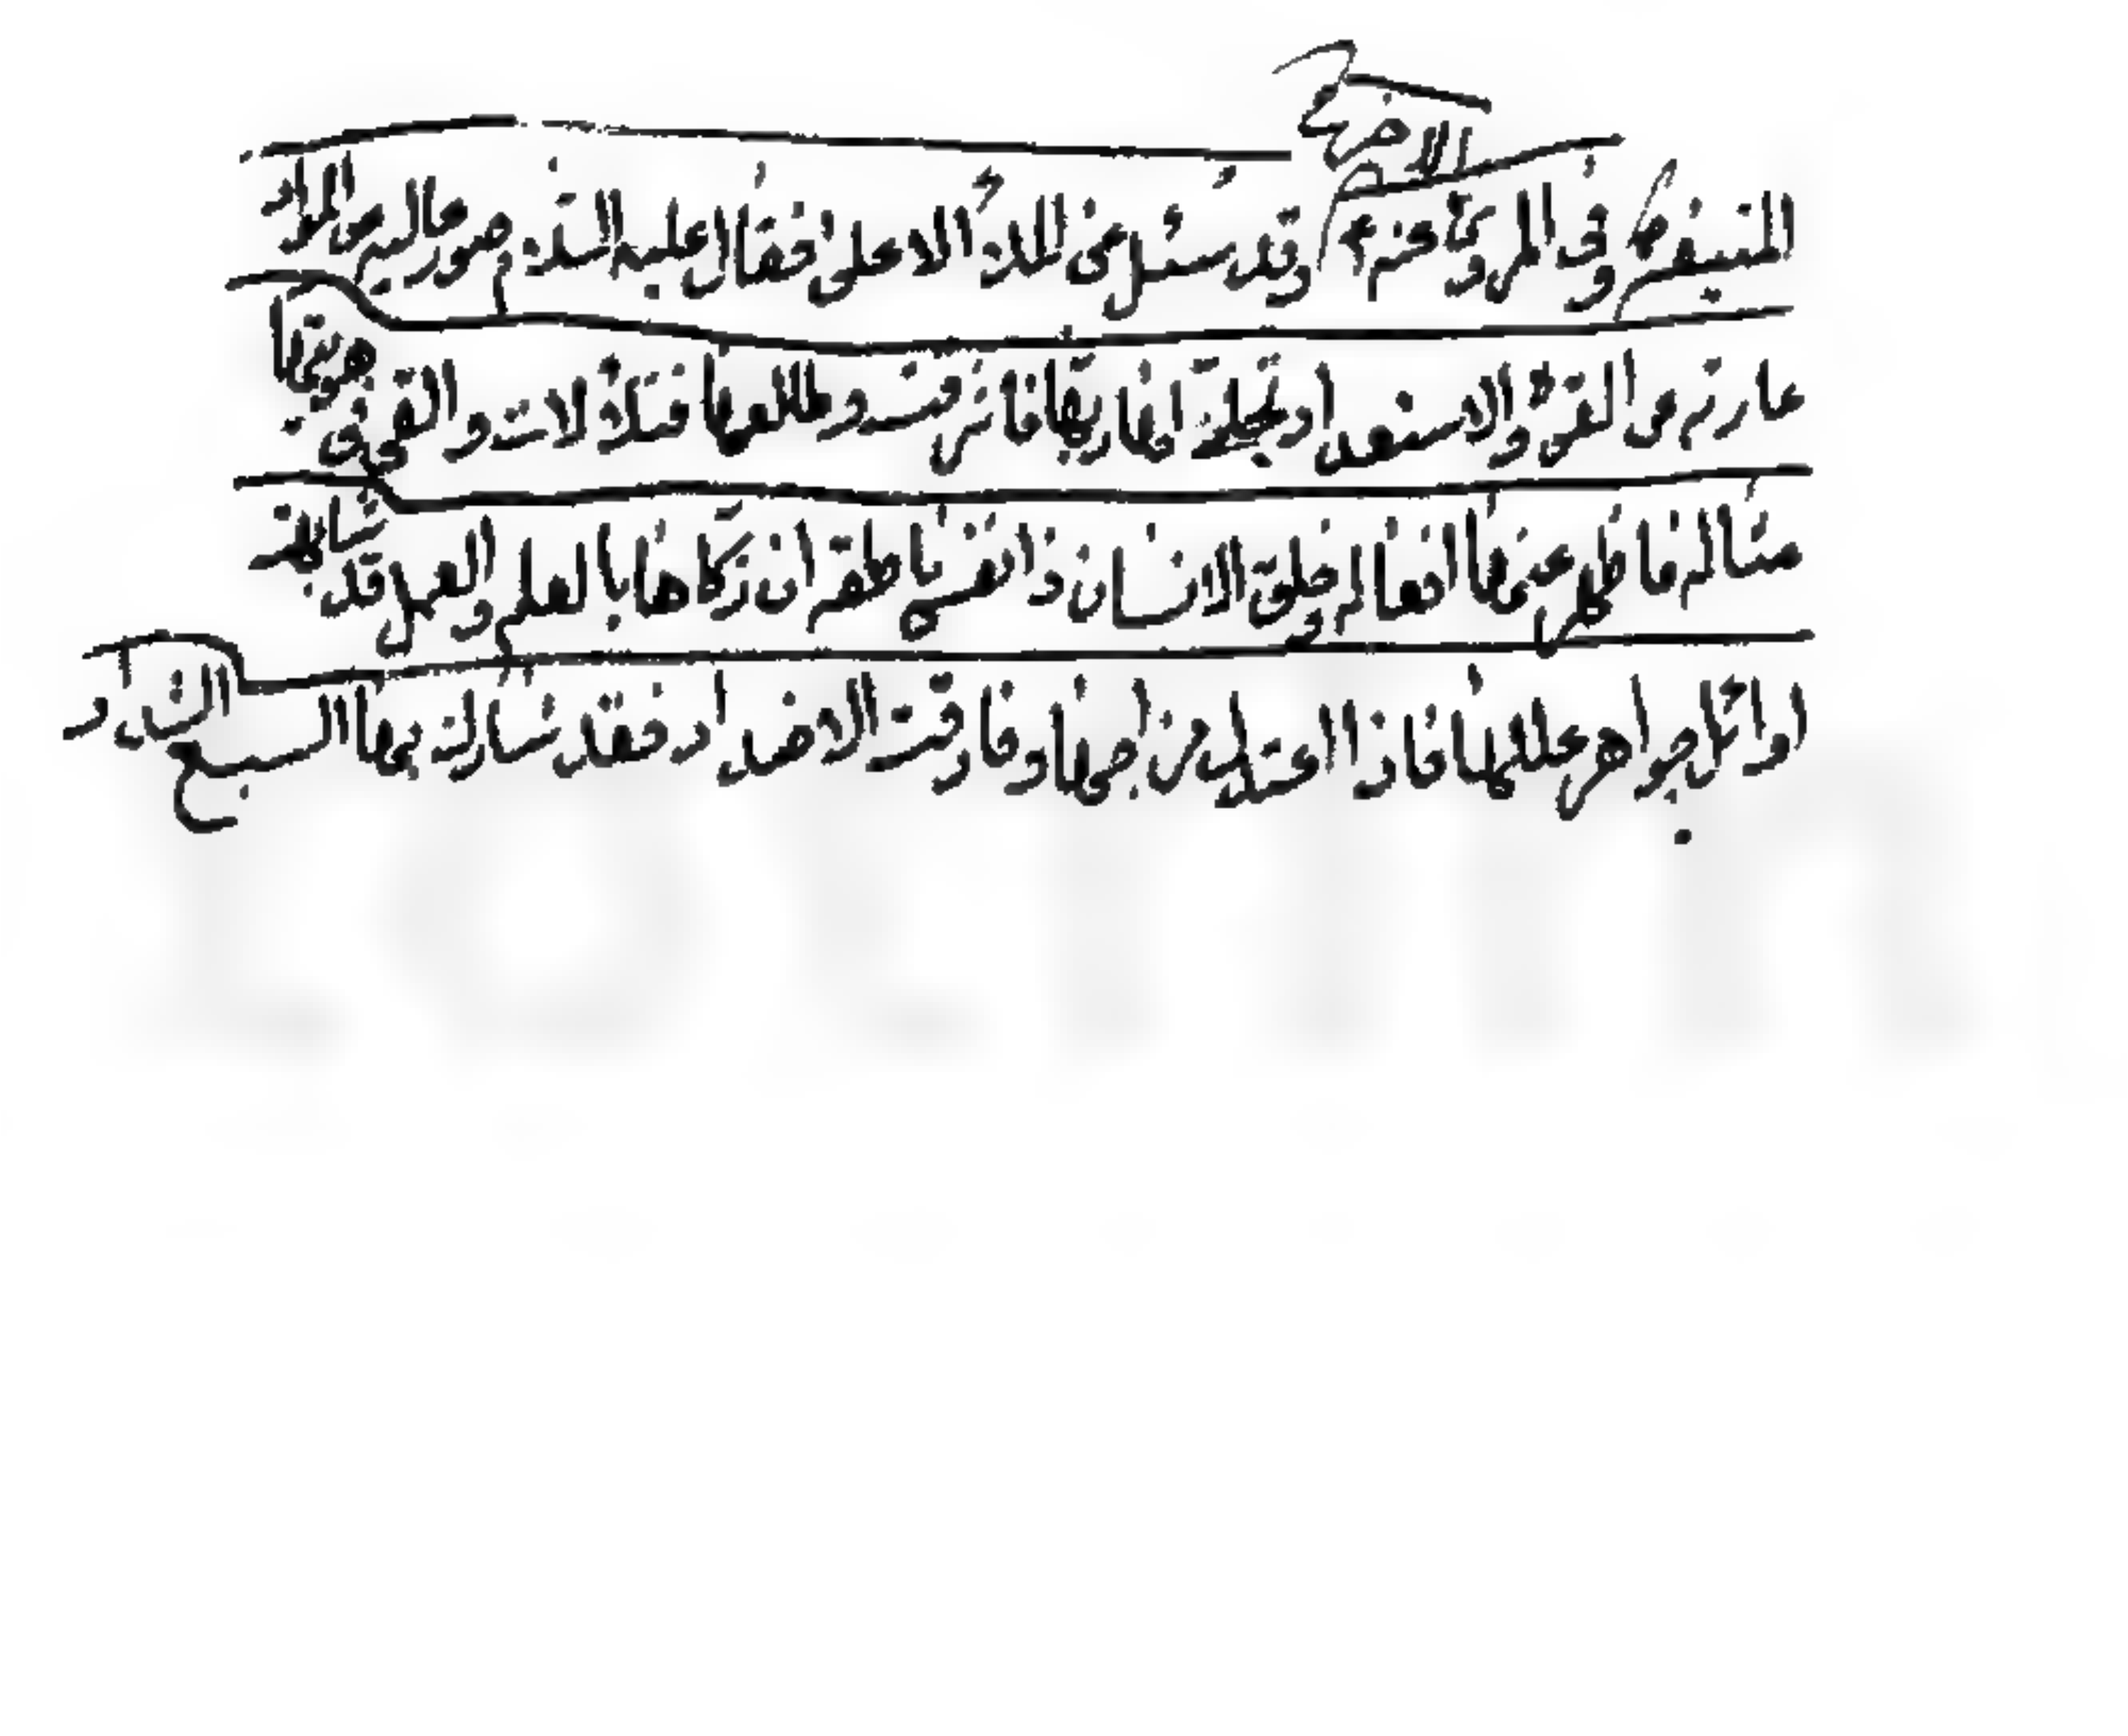 وفى المروى عنه ع م وقد سئل عن الملاء الاعلى فقال عليه السلام صور عالية عن المواد
عارية عن القوة والاستعداد تجلى لها ربها فاشرقت وطالعها فتلألات والقى فى هويتها
مثاله فاظهر عنها افعاله وخلق الانسان ذا نفس ناطقة ان زكاها بالعلم والعمل فقد شابهت
اوائل جواهر عللها فاذا اعتدل مزاجها وفارقت الاضداد فقد شارك بها السبع الشداد